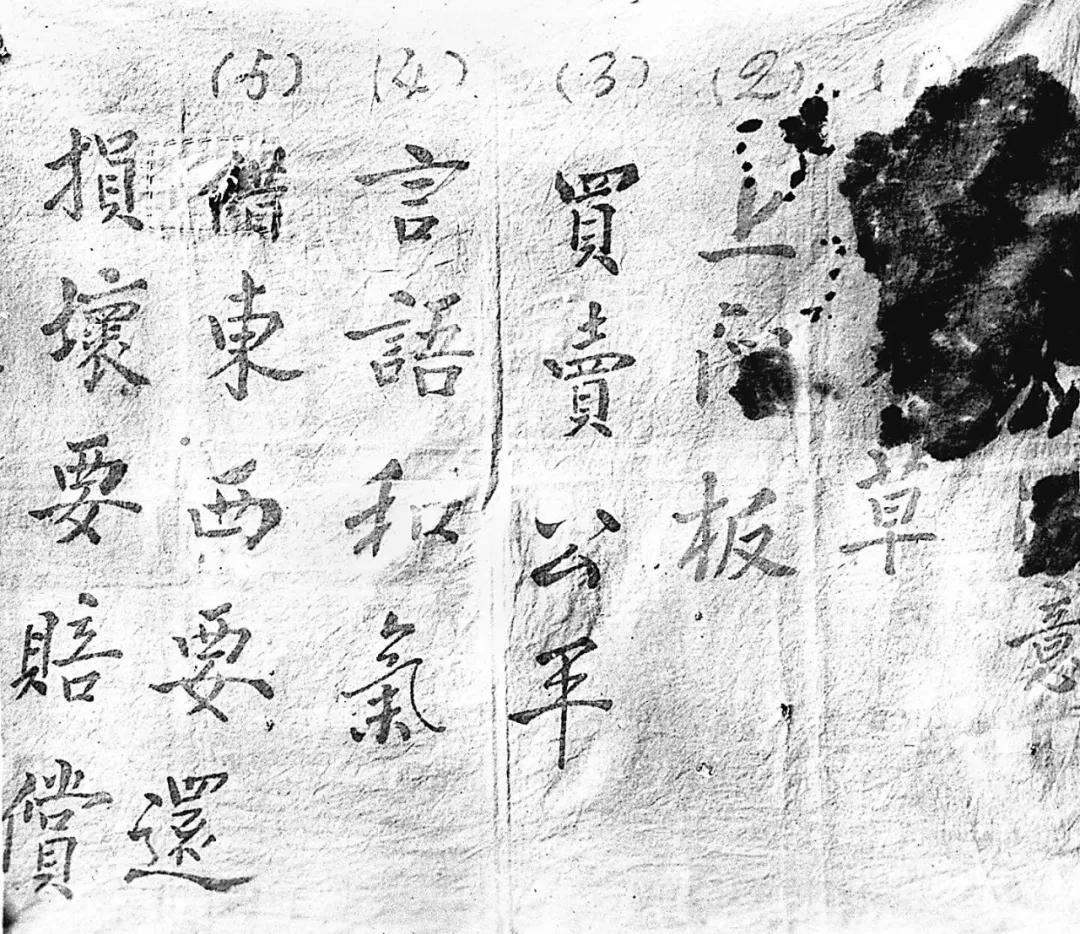 意
(1) 草
(2) 上 板
(3) 買賣公平
(4) 言語和氣
(5) 借東西要還
損壞要賠償